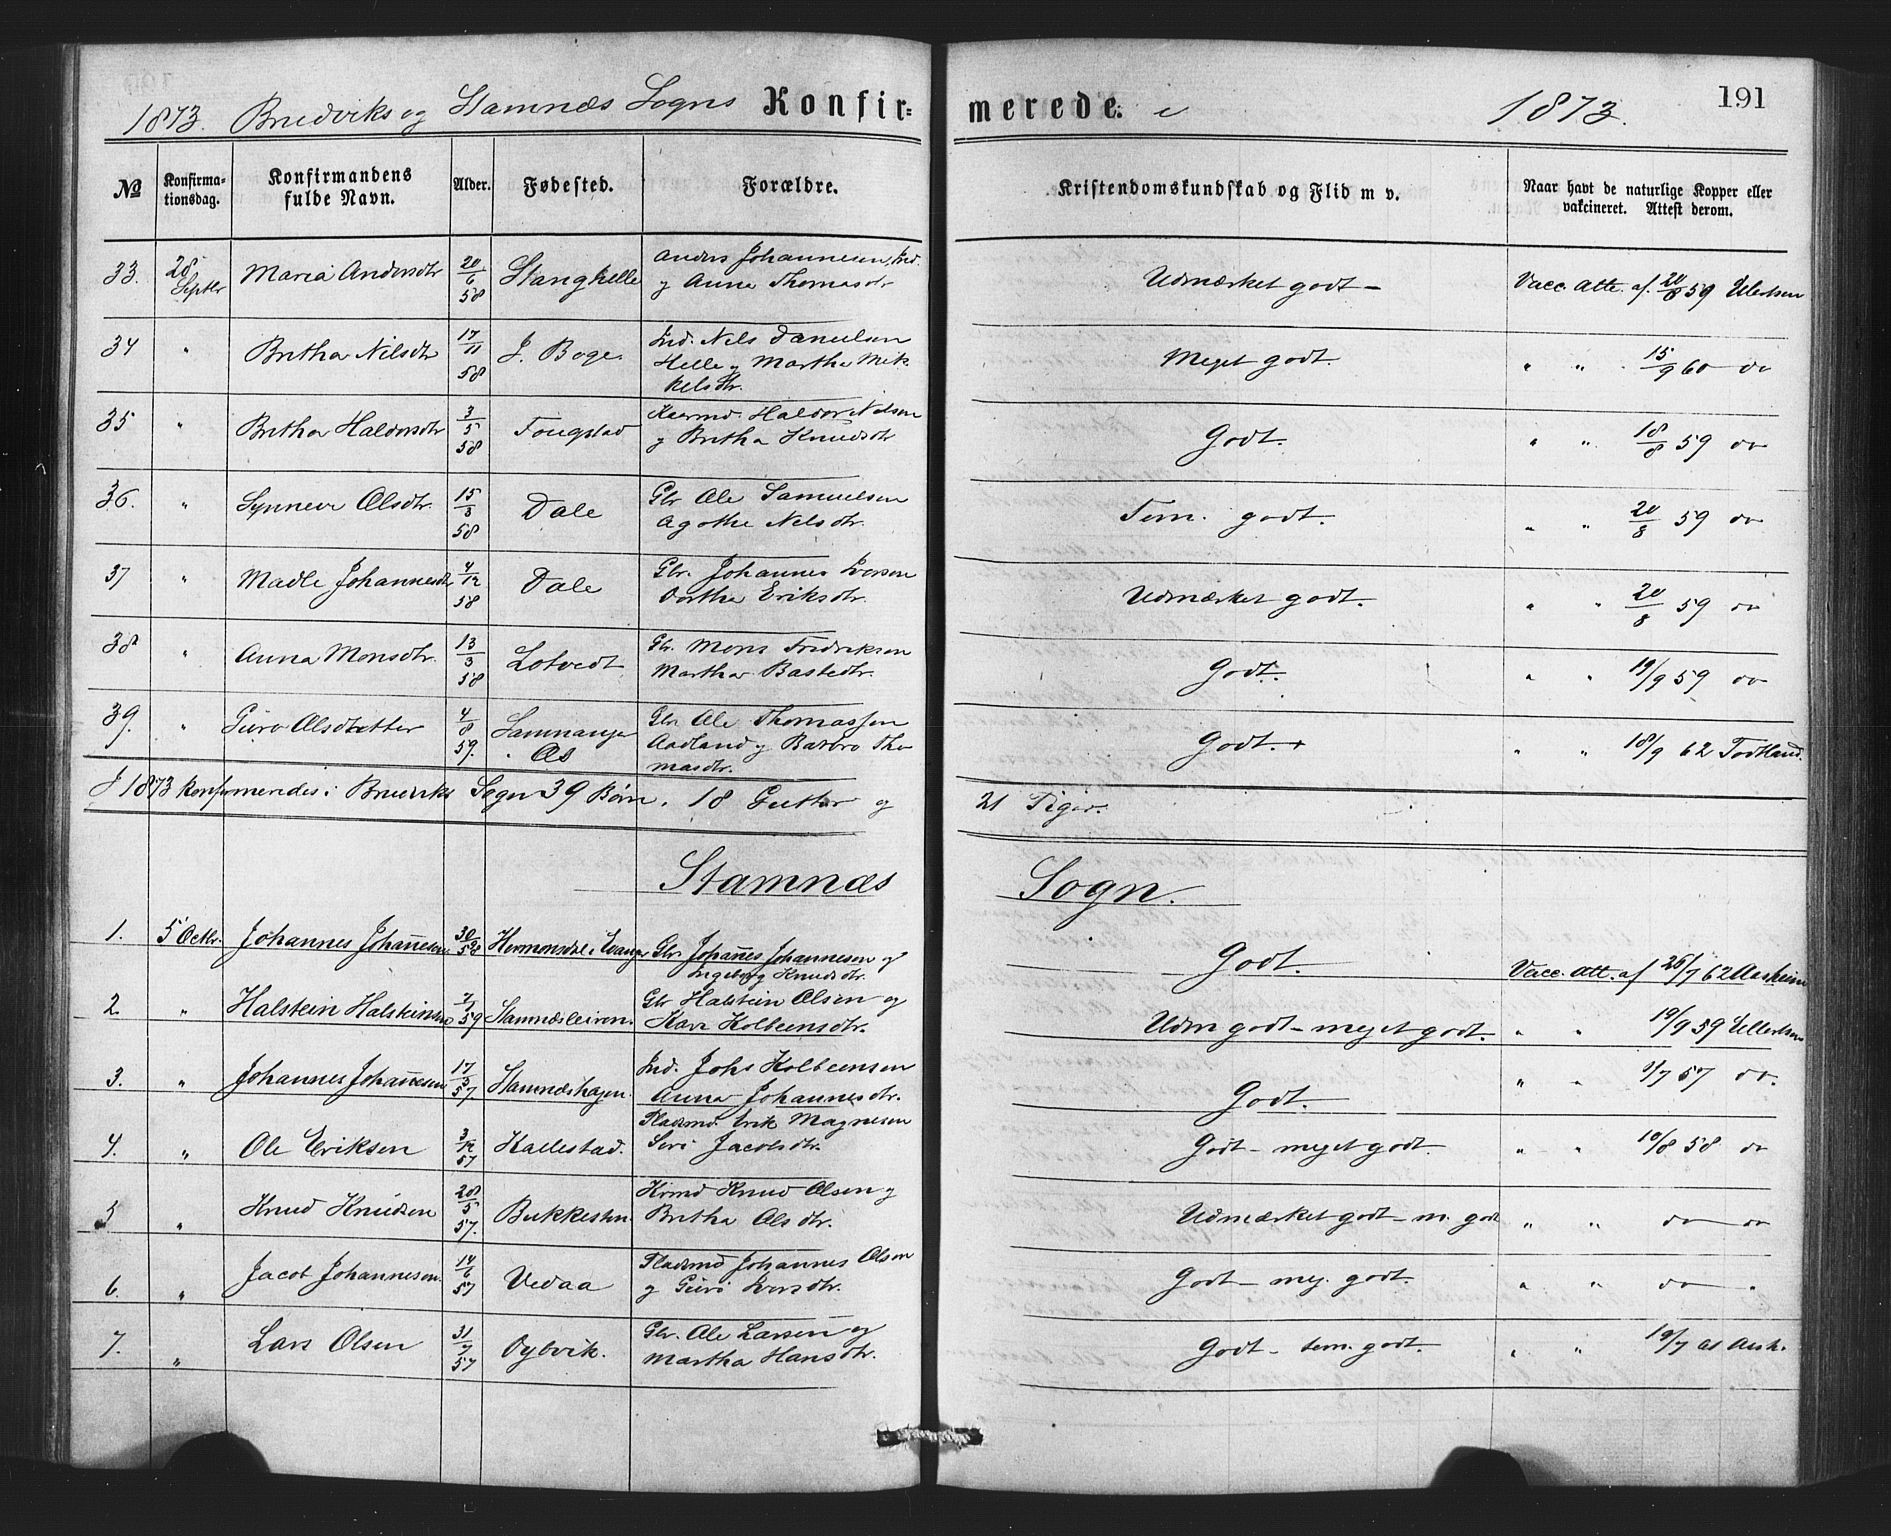 1873. Bruviks og Stamnæs Sogns Konfir=merede i 1873. 191
No Konfirmationsdag. Konfirmandens fulde Navn. Alder. Fødested. Forældre. Kristendomskundskab og Flid m v. Naar havt de naturlige Kopper eller vakcineret. Attest derom.
33. 28 Septbr Maria Andersdtr 20/6 58 Stanghelle Anders Johannesen, Ind.
og Anna Thomasdtr Udmærket godt – Vacc. atte. af. 20/8 59 Ulertsen
34 " Britha Nilsdtr 17/11 58 J. Boge Ind. Nils Danielsen
Helle og Martha Mik-
kelsdtr. Meget godt. " " 15/9 60 do
35 " Britha Haldorsdtr 3/5 58 Fougstad Haldor Nilsen
og Britha Knudsdtr Godt. " " 18/8 59 do
36. " Synneve Olsdtr. 15/3 58 Dale Gbr Ole Samuelsen
Agathe Nilsdtr. Tem. godt. " " 20/8 59 do
37 " Madle Johannesdtr 4/12 58 Dale Gbr. Johannes Iversen
Dortha Eriksdtr. Udmærket godt. " " 20/8 59 do
38 " Anna Monsdtr. 13/3 58 Lotvedt Gbr. Mons Fredriksen
Martha Bastedtr. Godt. " " 19/9 59 do
39. " Guro Olsdatter 4/8 59. Samnanger Os Gbr Ole Thomassen
Aadland og Barbro Tho
masdtr. Godt. " " 18/9 62 Todtland.
I 1873 konfirmeredes i Bruviks Sogn 39 Børn. 18 Gutter og 21 Piger.
Stamnæs Sogn.
1. 5 Octbr. Johannes Johannesen 30/5 58 Hermonsdal i Evanger Gbr. Johannes Johannesen og
Ingeborg Knudsdtr. Godt. Vacc. att. af 26/7 62 Aasheim
2. " Halstein Halsteinsen 7/1 59 Stamnæsleiren. Gbr Halstein Olsen og
Kari Kolbeensdtr. Udm godt – meget godt. " " 19/9 59 Ullertsen
3. " Johannes Johannesen 17/5 57 Stamnæshagen. Ind. Johs Kolbeensen
Anna Johannesdtr. Godt. " " 9/7 57 do.
4. " Ole Eriksen 3/12 57 Kallestad. Pladsmd. Erik Magnesen
Siri Jacobsdtr. Godt – meget godt. " " 10/8 58 do
5 " Knud Knudsen 28/5 57. Bukkesten Knud Olsen og
Britha Olsdtr. Udmærket godt – m. godt " " do do
6. " Jacob Johannesen. 14/6 57 Vedaa Pladsmd Johannes Olsen
og Guri Iversdtr. Godt – meg. godt. " " do "
7. " Lars Olsen 31/7 57 Oybvik. Gbr. Ole Larsen og
Martha Hansdtr. Godt – tem. godt. " " 19/7 61 Aash.